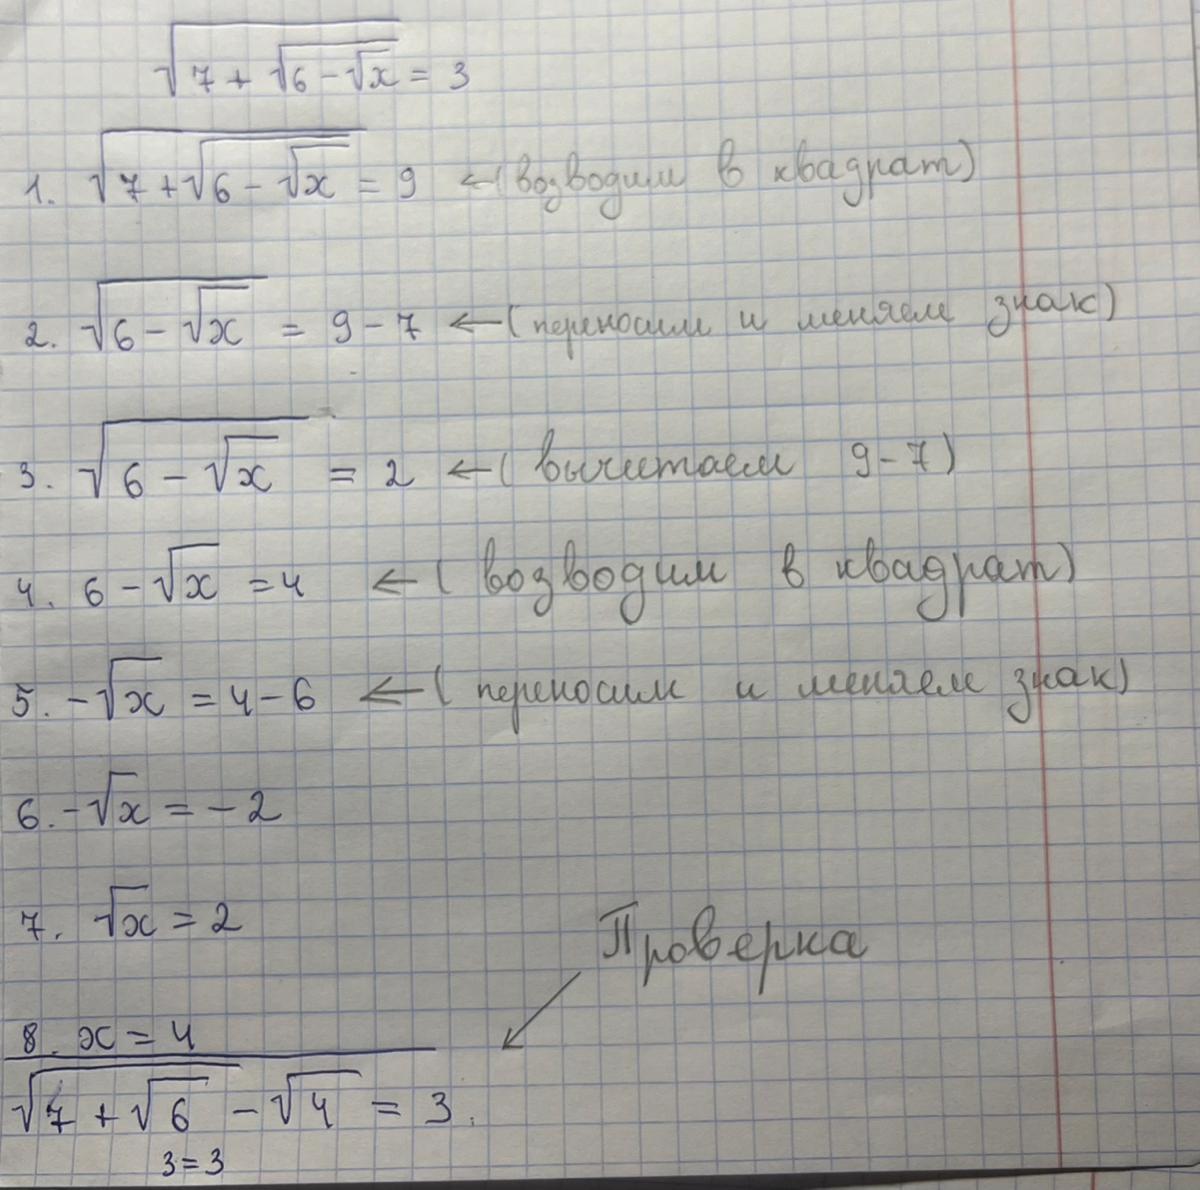 √7 + √6 - √x = 3
1. √7 + √6 - √x = 9 ← (возводим в квадрат)
2. √6 - √x = 9 - 7 ← (переносим и меняем знак)
3. √6 - √x = 2 ← (вычитаем 9-7)
4. 6 - √x = 4 ← (возводим в квадрат)
5. -√x = 4 - 6 ← (переносим и меняем знак)
6. -√x = -2
7. √x = 2
Проверка
8. x = 4
√7 + √6 - √4 = 3.
3 = 3